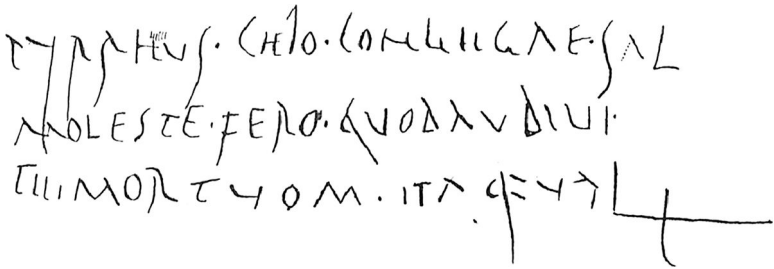 PYRRHVS · CHIO · CONLEGAE · SAL
MOLESTE · FERO · QVOD AVDIVI ·
TE MORTVOM · ITAQ · VAL